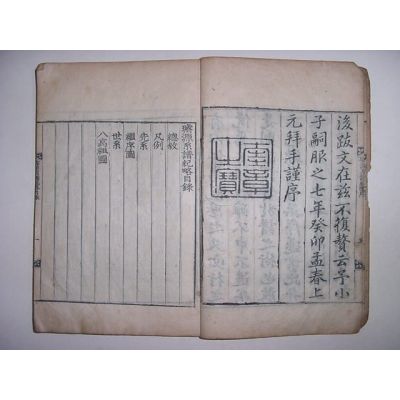 後跋文在兹不復贅云予小
子嗣服之七年癸卯孟春上
元拜手謹序
奎章
之寶
璿源系譜紀略目錄
總敘
凡例
先系
繼序圖
世系
八高祖圖